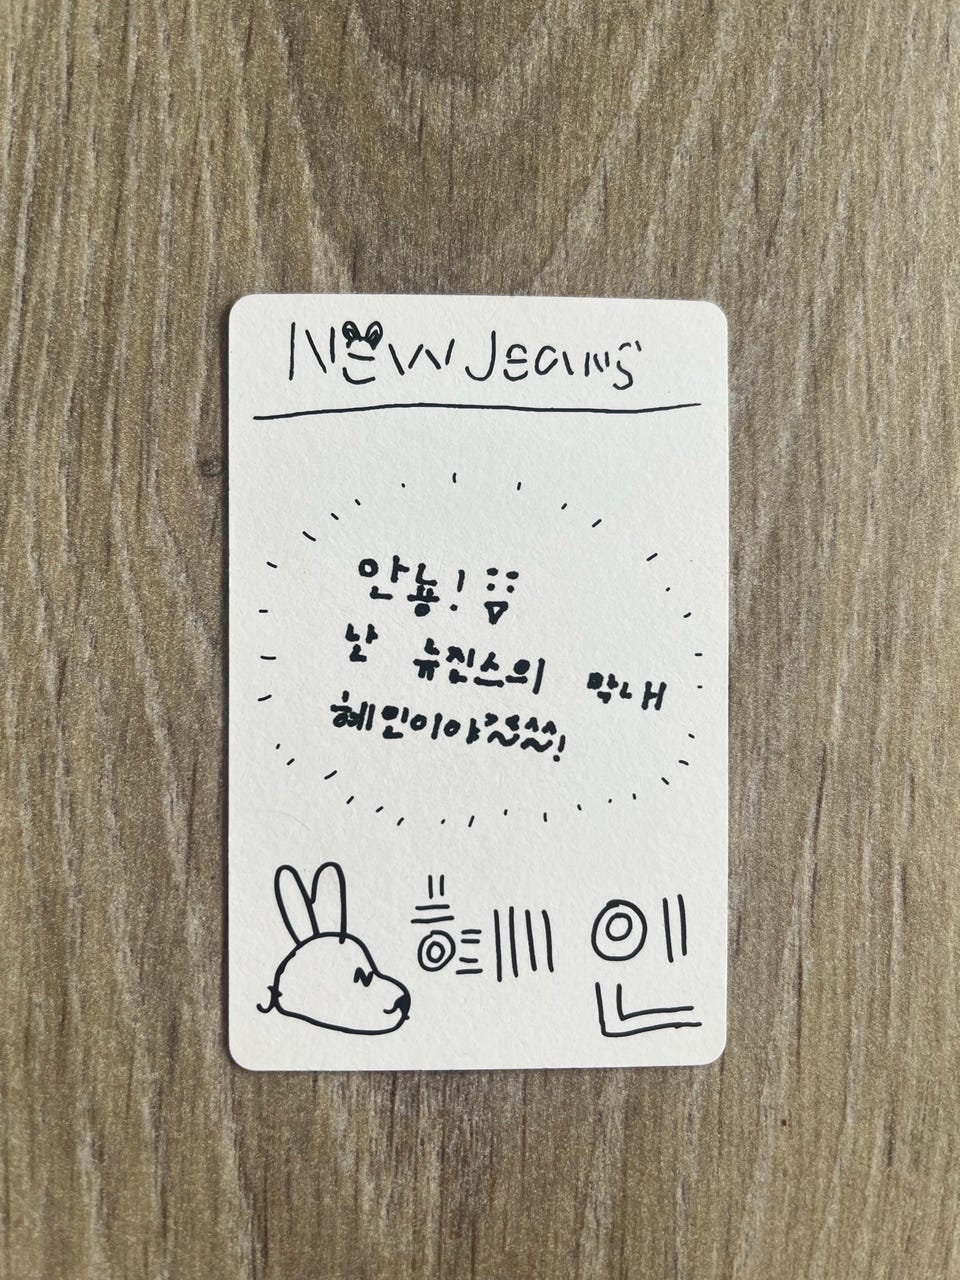 NEW Jeans
안뇽!
난 뉴진스의 막내
혜인이야~~~~!
혜인